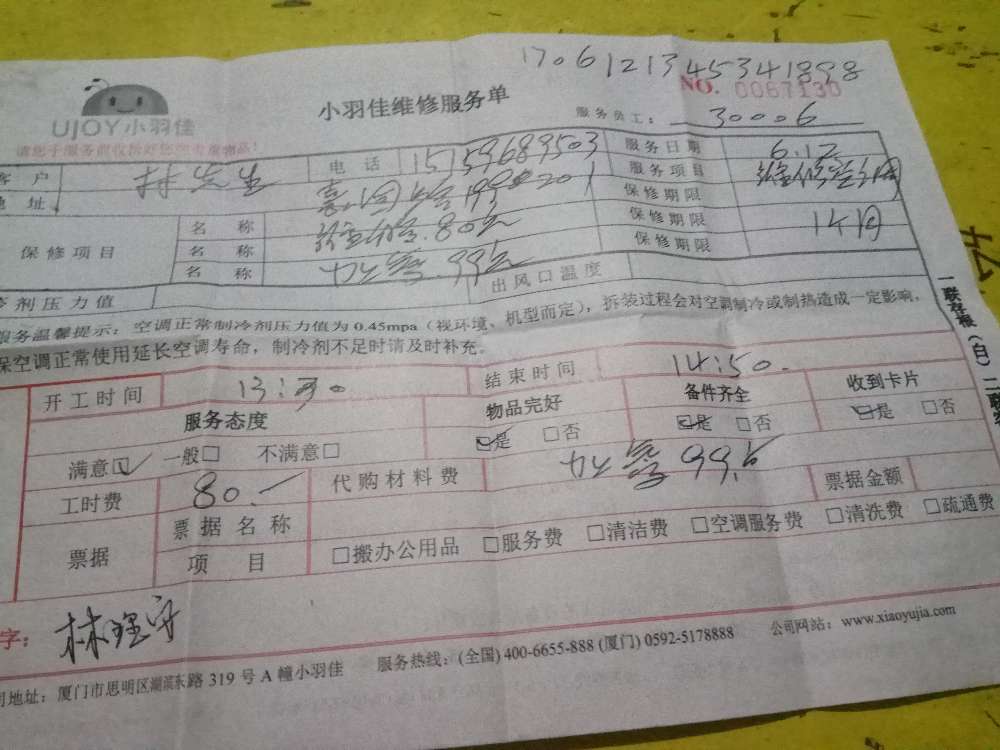 1706121345341898
NO. 0087130
UJOY小羽佳
小羽佳维修服务单
服务员工: 30006
请您于服务前收拾好您的贵重物品!
客户 林先生 电话 15159689503 服务日期 6.12
地址 199 201 服务项目
保修项目 名称 80元 保修期限
名称 保修期限 1个月
名称 加氟.99元 保修期限
冷剂压力值 出风口温度
服务温馨提示: 空调正常制冷剂压力值为 0.45mpa (视环境、机型而定), 拆装过程会对空调制冷或制热造成一定影响,
保空调正常使用延长空调寿命, 制冷剂不足时请及时补充。
开工时间 13:30 结束时间 14:50.
服务态度 物品完好 备件齐全 收到卡片
满意☑ 一般□ 不满意□ ☑是 □否 ☑是 □否 ☑是 □否
工时费 80.- 代购材料费 99元 票据金额
票据 票据名称
项目 □搬办公用品 □服务费 □清洁费 □空调服务费 □清洗费 □疏通费
字:
司地址: 厦门市思明区湖滨东路 319 号 A 幢小羽佳 服务热线: (全国) 400-6655-888 (厦门) 0592-5178888 公司网站: www.xiaoyujia.com
一联存根(白) 二联